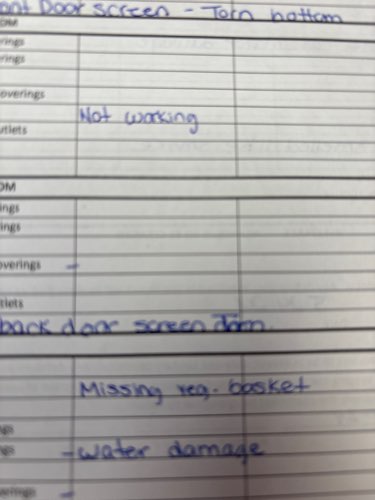 ont Door screen - Torn bottom
OM
rings
rings
overings
Not working
utlets
OM
ings
ings
overings -
tlets
back door screen Torn.
Missing veg. basket
gs
gs - water damage
verings -